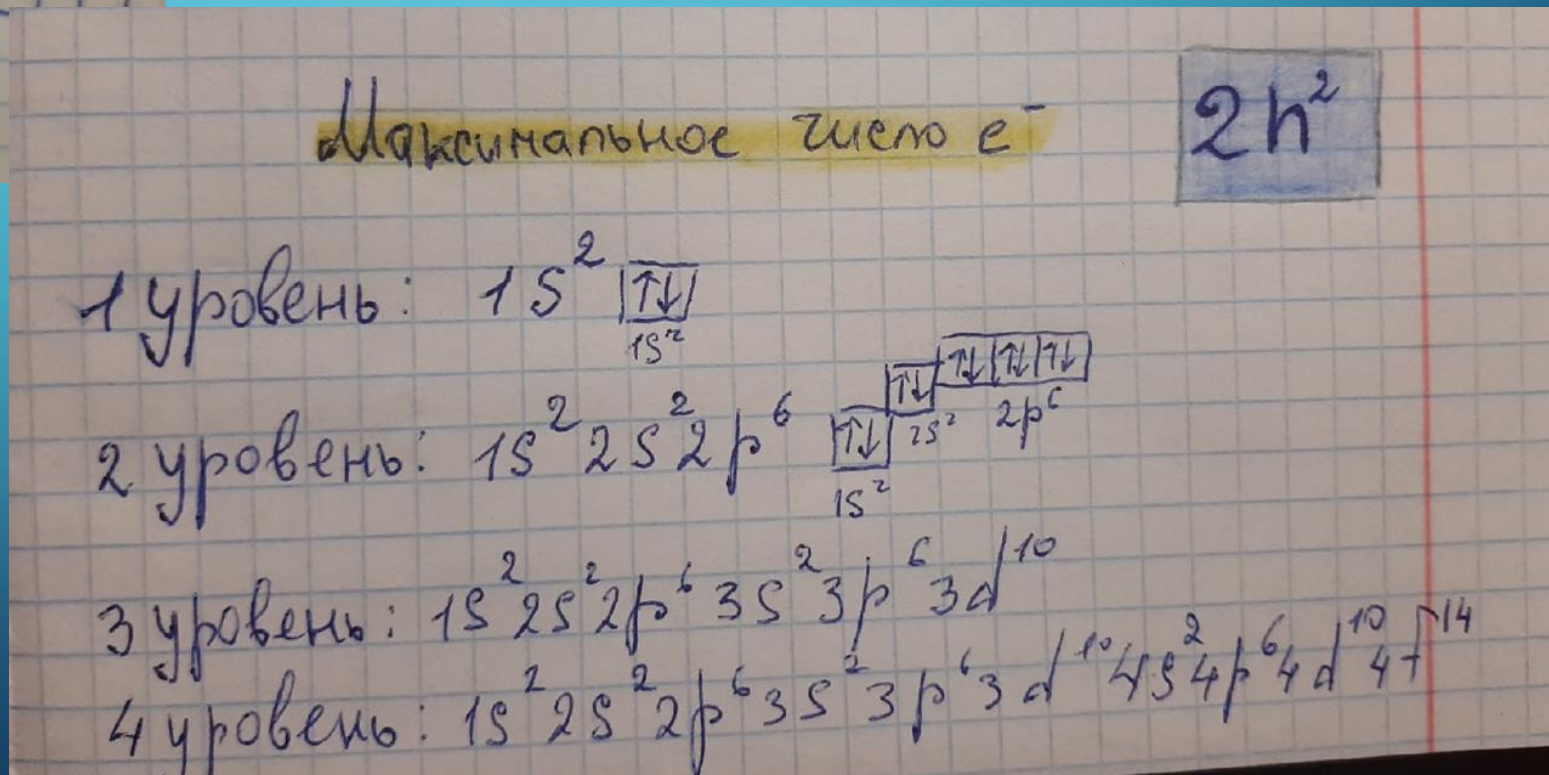 Максимальное число e⁻ 2n²
1 уровень: 1s² ↑↓
1s²
2 уровень: 1s² 2s² 2p⁶ ↑↓ ↑↓ ↑↓ ↑↓ ↑↓
1s² 2s² 2p⁶
3 уровень: 1s² 2s² 2p⁶ 3s² 3p⁶ 3d¹⁰
4 уровень: 1s² 2s² 2p⁶ 3s² 3p⁶ 3d¹⁰ 4s² 4p⁶ 4d¹⁰ 4f¹⁴